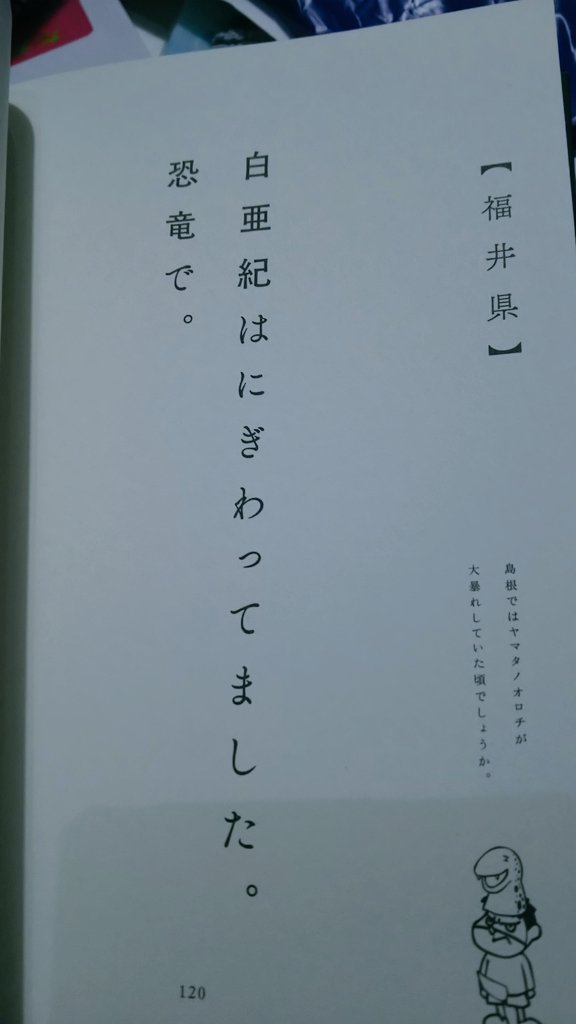 【福井県】
島根ではヤマタノオロチが
大暴れしていた頃でしょうか。
白亜紀はにぎわってました。
恐竜で。
120